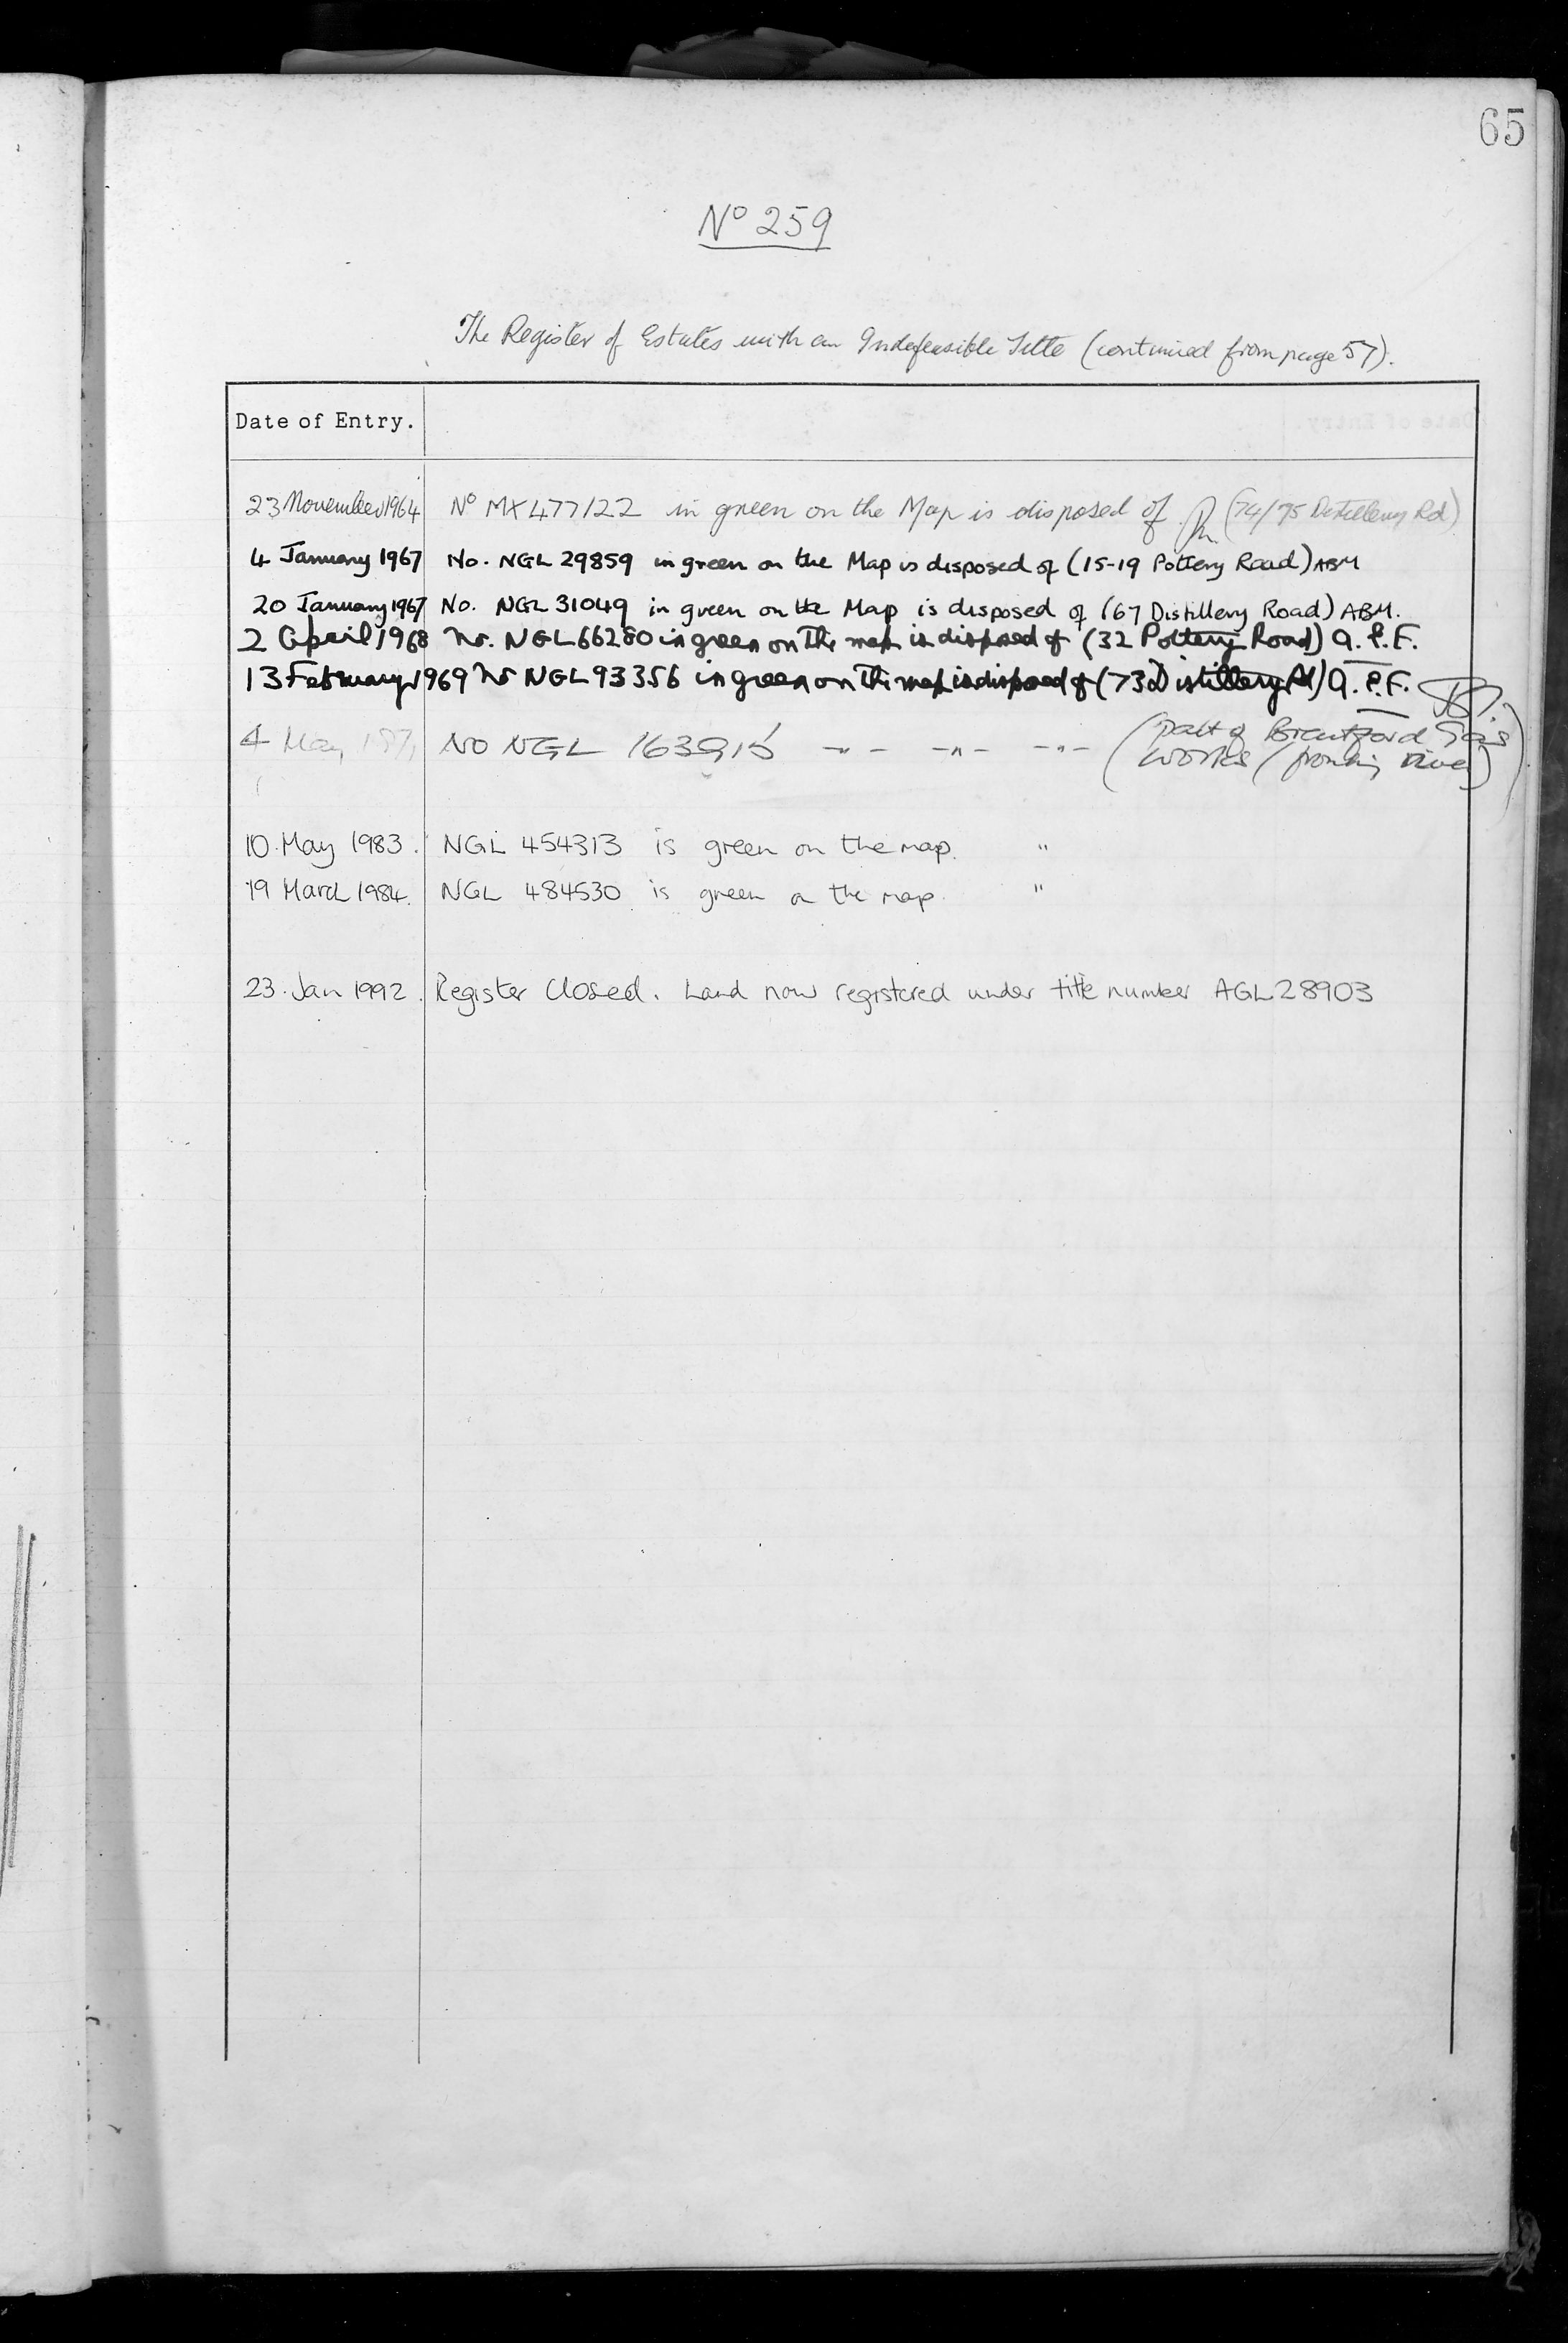 65
Nº 259
The Register of Estates with an Indefeasible Title (continued from page 57).
Date of Entry.
23 November 1964 Nº MX477122 in green on the Map is disposed of (74/75 Distillery Rd)
4 January 1967 No. NGL 29859 in green on the Map is disposed of (15-19 Pottery Road) ABM
20 January 1967 No. NGL 31049 in green on the Map is disposed of (67 Distillery Road) ABM.
2 April 1968 No. NGL 66280 in green on the map is disposed of (32 Pottery Road) a.P.F.
13 February 1969 No NGL 93356 in green on the map is disposed of (73 Distillery Rd) a.P.F.
4 May 1971 NO NGL 163915 -"- -"- -"- (part of Brentford Gas
Works (fronting River)
10. May 1983. NGL 454313 is green on the map. "
19 March 1984. NGL 484530 is green on the map. "
23. Jan 1992. Register Closed. Land now registered under title number AGL28903